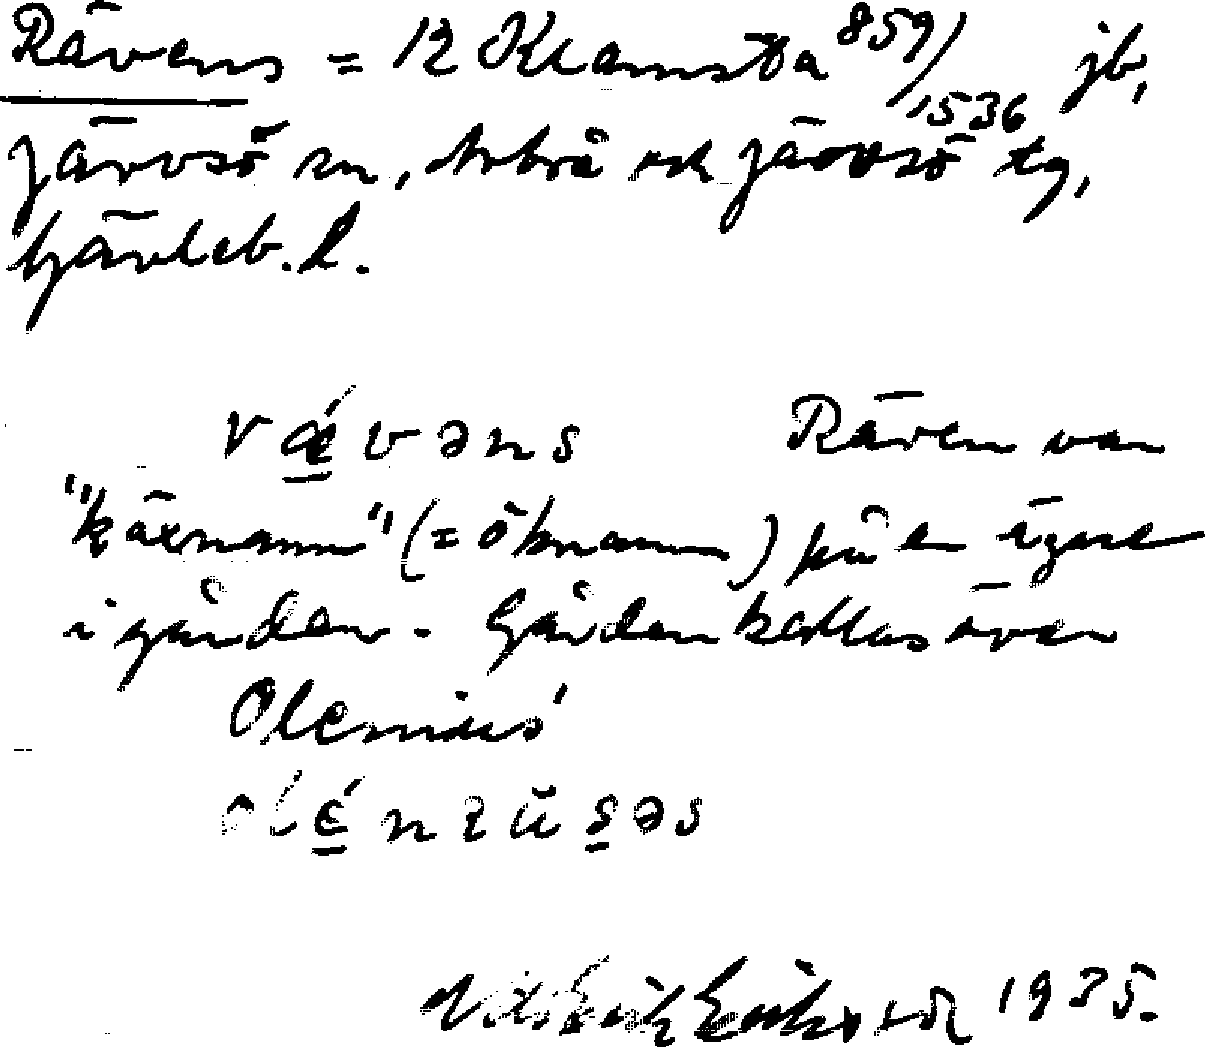 Rävens = 12 Kramsta 859/1536 jb,
Järvsö sn, Arbrå och Järvsö tg,
Gävleb. l.
rǽvəns Räven var
"kärnamn" (= öknamn) på en ägare
i gården. Gården kallas även
Olenius'
ŏlénɪŭsəs
Erik Eriksson 1935.